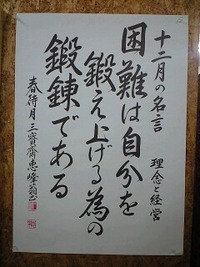 十二月の名言
理念と経営
困難は自分を
鍛え上げる為の
鍛錬である
春待月 三寶齋恵峰